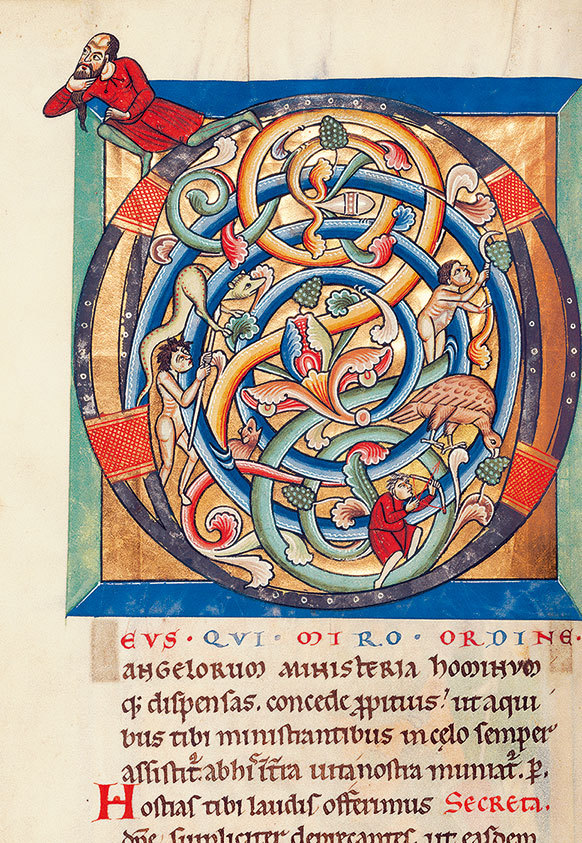 D
EVS · QVI · MIRO · ORDINE ·
ANGELORUM MINISTERIA hOMINUM
q; dispensas. concede ꝓpitius! ut a qui
bus tibi ministrantibus in celo semper
assistit᷑ ab his ī tr̄a uita nostra muniat᷑. P.
Hostias tibi laudis offerimus Secreta.
dn̄e supliciter deprecantes. ut easdem